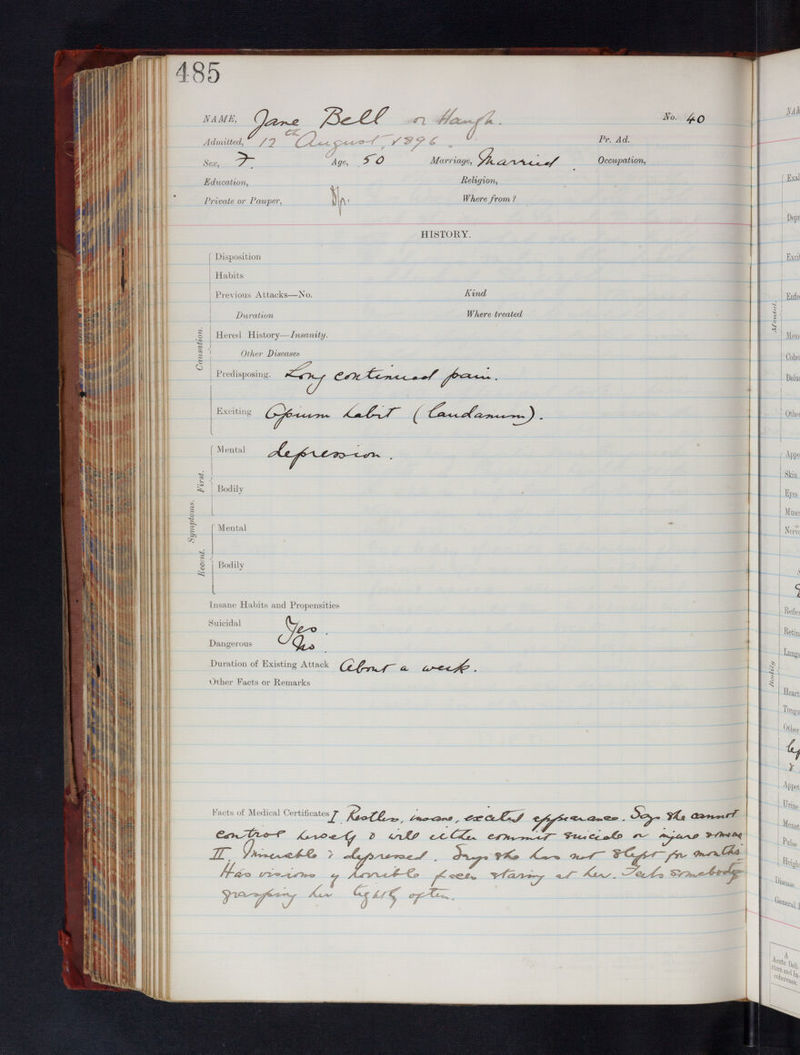 485
NAME, Jane Bell or Haugh. No. 40
Admitted, 12th August, 1896. Pr. Ad.
Sex, F. Age, 50 Marriage, Married Occupation,
Education, Religion,
Private or Pauper, Where from?
HISTORY.
Disposition
Habits
Previous Attacks—No. Kind
Duration Where treated
Causation.
Hered History—Insanity.
Other Diseases
Predisposing. Long continued pain.
Exciting Opium habit (laudanum).
Symptoms. First.
Mental depression.
Bodily
Recent.
Mental
Bodily
Insane Habits and Propensities
Suicidal Yes.
Dangerous No.
Duration of Existing Attack About a week.
Other Facts or Remarks
Facts of Medical Certificates I. Restless, insane, excited appearance. Says she cannot
control herself & will either commit suicide or injure someone
II Miserable & depressed. Says she has not slept for months
Has visions of horrible faces staring at her. Feels somebody
grasping her tightly often.
Mental.
Bodily
Skin
Eyes
Heart
Urine
Pulse
Disease
General